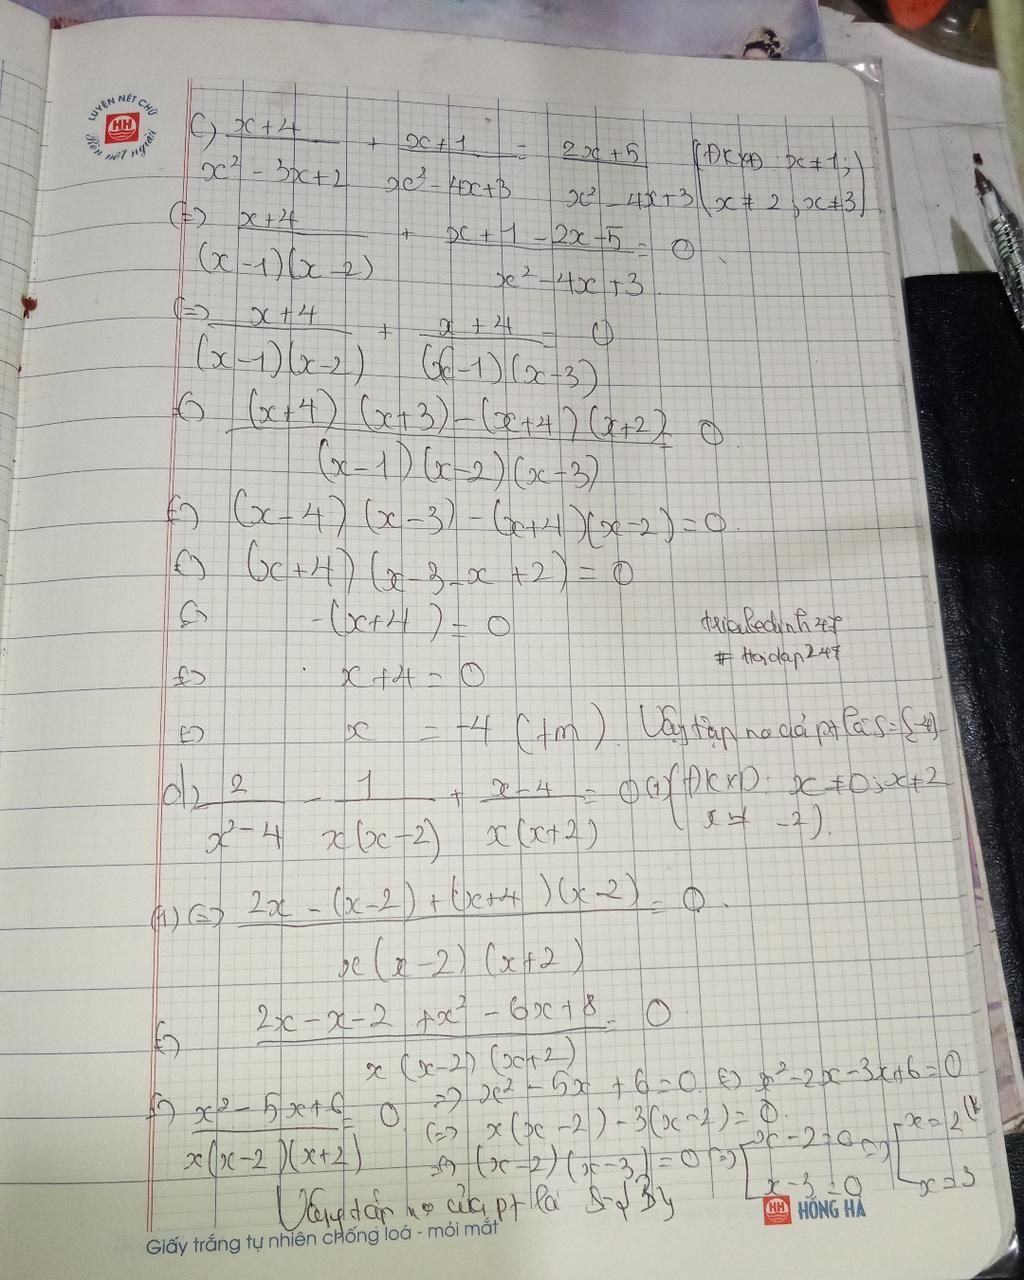 LUYỆN NÉT CHỮ
HH
Rèn nết người
c) x+4/(x² - 3x+2) + x+1/(x² - 4x+3) = 2x+5/(x² - 4x+3) (ĐKXĐ: x≠1;
x≠2, x≠3)
(=) x+4/((x-1)(x-2)) + x+1-2x-5/(x² - 4x+3) = 0
(=) x+4/((x-1)(x-2)) + x+4/((x-1)(x-3)) = 0
(=) (x+4)(x+3)-(x+4)(x+2)/((x-1)(x-2)(x-3)) = 0
(=) (x-4)(x-3)-(x+4)(x-2)=0
(=) (x+4)(x-3-x+2)=0
(=) -(x+4)=0
trialedinh247
# Hoidap247
(=) x+4=0
(=) x = -4 (tm). Vậy tập no của pt là S={-4}
d) 2/(x²-4) - 1/(x(x-2)) + x-4/(x(x+2)) = 0 (1) (ĐKXĐ: x≠0; x≠2
x≠ -2).
(1) (=) 2x-(x-2)+(x+4)(x-2)/(x(x-2)(x+2)) = 0.
(=) 2x-x-2+x²-6x+8/(x(x-2)(x+2)) = 0
(=) x²-5x+6/(x(x-2)(x+2)) = 0
=> x²-5x+6=0 (=) x²-2x-3x+6=0
(=) x(x-2)-3(x-2)=0.
(=) (x-2)(x-3)=0 => [x-2=0 => [x=2
x-3=0 x=3
Vậy tập no của pt là S={3}
HH HỒNG HÀ
Giấy trắng tự nhiên chống loá - mỏi mắt